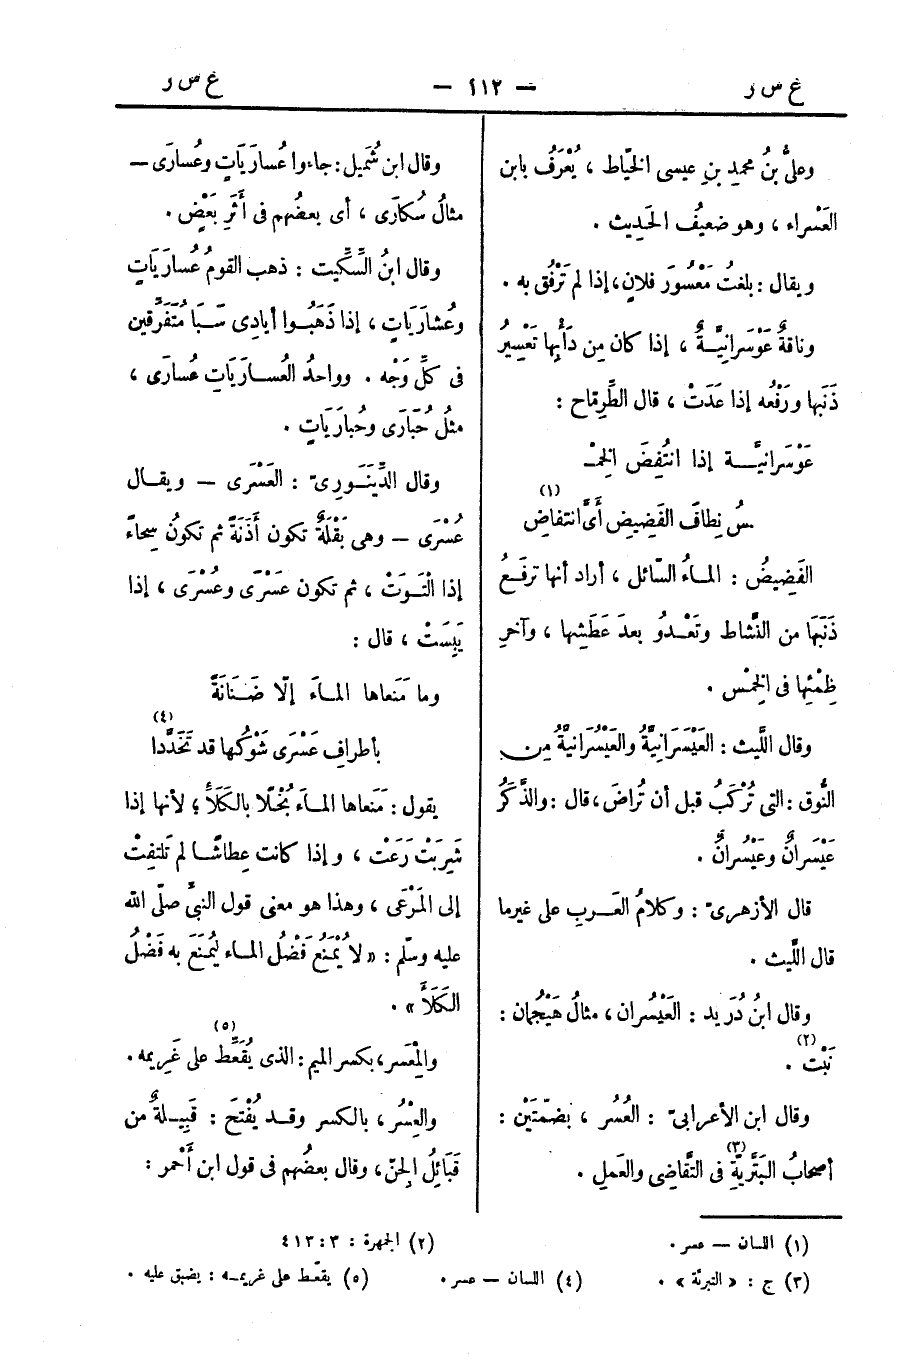 ع س ر — ٤١٢ — ع س ر
وعلىُّ بنُ محمدِ بنِ عيسى الخيّاط ، يُعْرَفُ بابن
العَسْراء ، وهو ضعيفُ الحَديث .
ويقال : بلغتُ مَعْسُورَ فلانٍ، إذا لم تَرْفُق به .
وناقةٌ عَوْسَرانِيَّةٌ ، إذا كان مِن دَأْبِها تَعْسِيرُ
ذَنَبها ورَفْعُه إذا عَدَتْ ، قال الطِّرِمّاح :
عَوْسَرانيَّة إذا انتُفِضَ الخِمْـ
ـسُ نِطافَ الفَضِيضِ أَىَّ انتفاضِ (١)
الفَضِيضُ : الماءُ السّائل ، أراد أنها ترفَعُ
ذَنَبَها من النَّشاط وتَعْدُو بعدَ عَطَشِها ، وآخرِ
ظِمْئِها فى الخِمْس .
وقال اللَّيث : العَيْسَرَانِيَّةُ والعَيْسُرانِيَّةُ مِن
النُّوق : التى تُرْكَبُ قبل أن تُراضَ، قال : والذَّكَرُ
عَيْسَرانٌ وعَيْسُرانٌ .
قال الأزهرىّ : وكلامُ العَرب على غيرما
قال اللَّيث .
وقال ابنُ دُرَيد : العَيْسُران ، مثالُ هَيْجُمان :
نَبْت (٢) .
وقال ابن الأعرابىّ : العُسُر ، بضمّتَيْن :
أصحابُ البَتَّرِيّةِ (٣) فى التَّقاضِى والعَملِ .
وقال ابن شُمَيل : جاءوا عُسارَيَاتٍ وعُسارَى —
مثالُ سُكارَى ، أى بعضُهم فى أَثَرِ بَعْض .
وقال ابنُ السِّكِّيت : ذهب القومُ عُسارَيَاتٍ
وعُشارَيَاتٍ ، إذا ذَهَبُوا أيادِى سَبَا مُتَفَرِّقين
فى كلِّ وَجْه . وواحدُ العُسارَيَاتِ عُسارَى ،
مثلُ حُبَارَى وحُبارَيَاتٍ .
وقال الدِّينَوَرِىّ : العَسْرَى — ويقال
عُسْرَى — وهى بَقْلَةٌ تكون أَذَنَةً ثم تكونُ سِحاءً
إذا الْتَوَتْ ، ثم تكون عَسْرَى وعُسْرَى ، إذا
يَبِسَتْ ، قال :
وما مَنَعاها الماءَ إلّا ضَنَانَةً
بأطرافِ عَسْرَى شَوْكُها قد تَخَدَّدا (٤)
يقول : مَنَعاها الماءَ بُخْلًا بالكَلَأ ؛ لأنها إذا
شَرِبَتْ رَعَتْ ، وإذا كانت عِطاشًا لم تَلتفِتْ
إلى المَرْعَى ، وهذا هو معنى قول النبىّ صلّى الله
عليه وسلّم : « لا يُمْنَعُ فَضْلُ الماء لِيُمْنَعَ به فَضْلُ
الكَلَأ » .
والمِعْسَر، بكسر الميم : الذى يُقَعِّطُ (٥) على غَرِيمِه .
والعِسْرُ ، بالكسر وقد يُفْتَحُ : قَبِيلةٌ من
قَبَائِلُ الجنّ ، وقال بعضُهم فى قول ابن أَحْمر :
(١) اللسان – عسر .
(٢) الجمهرة : ٣ : ٤١٣
(٣) ج : « التبرئة » .
(٤) اللسان – عسر .
(٥) يقعّط على غريمه : يضيق عليه .